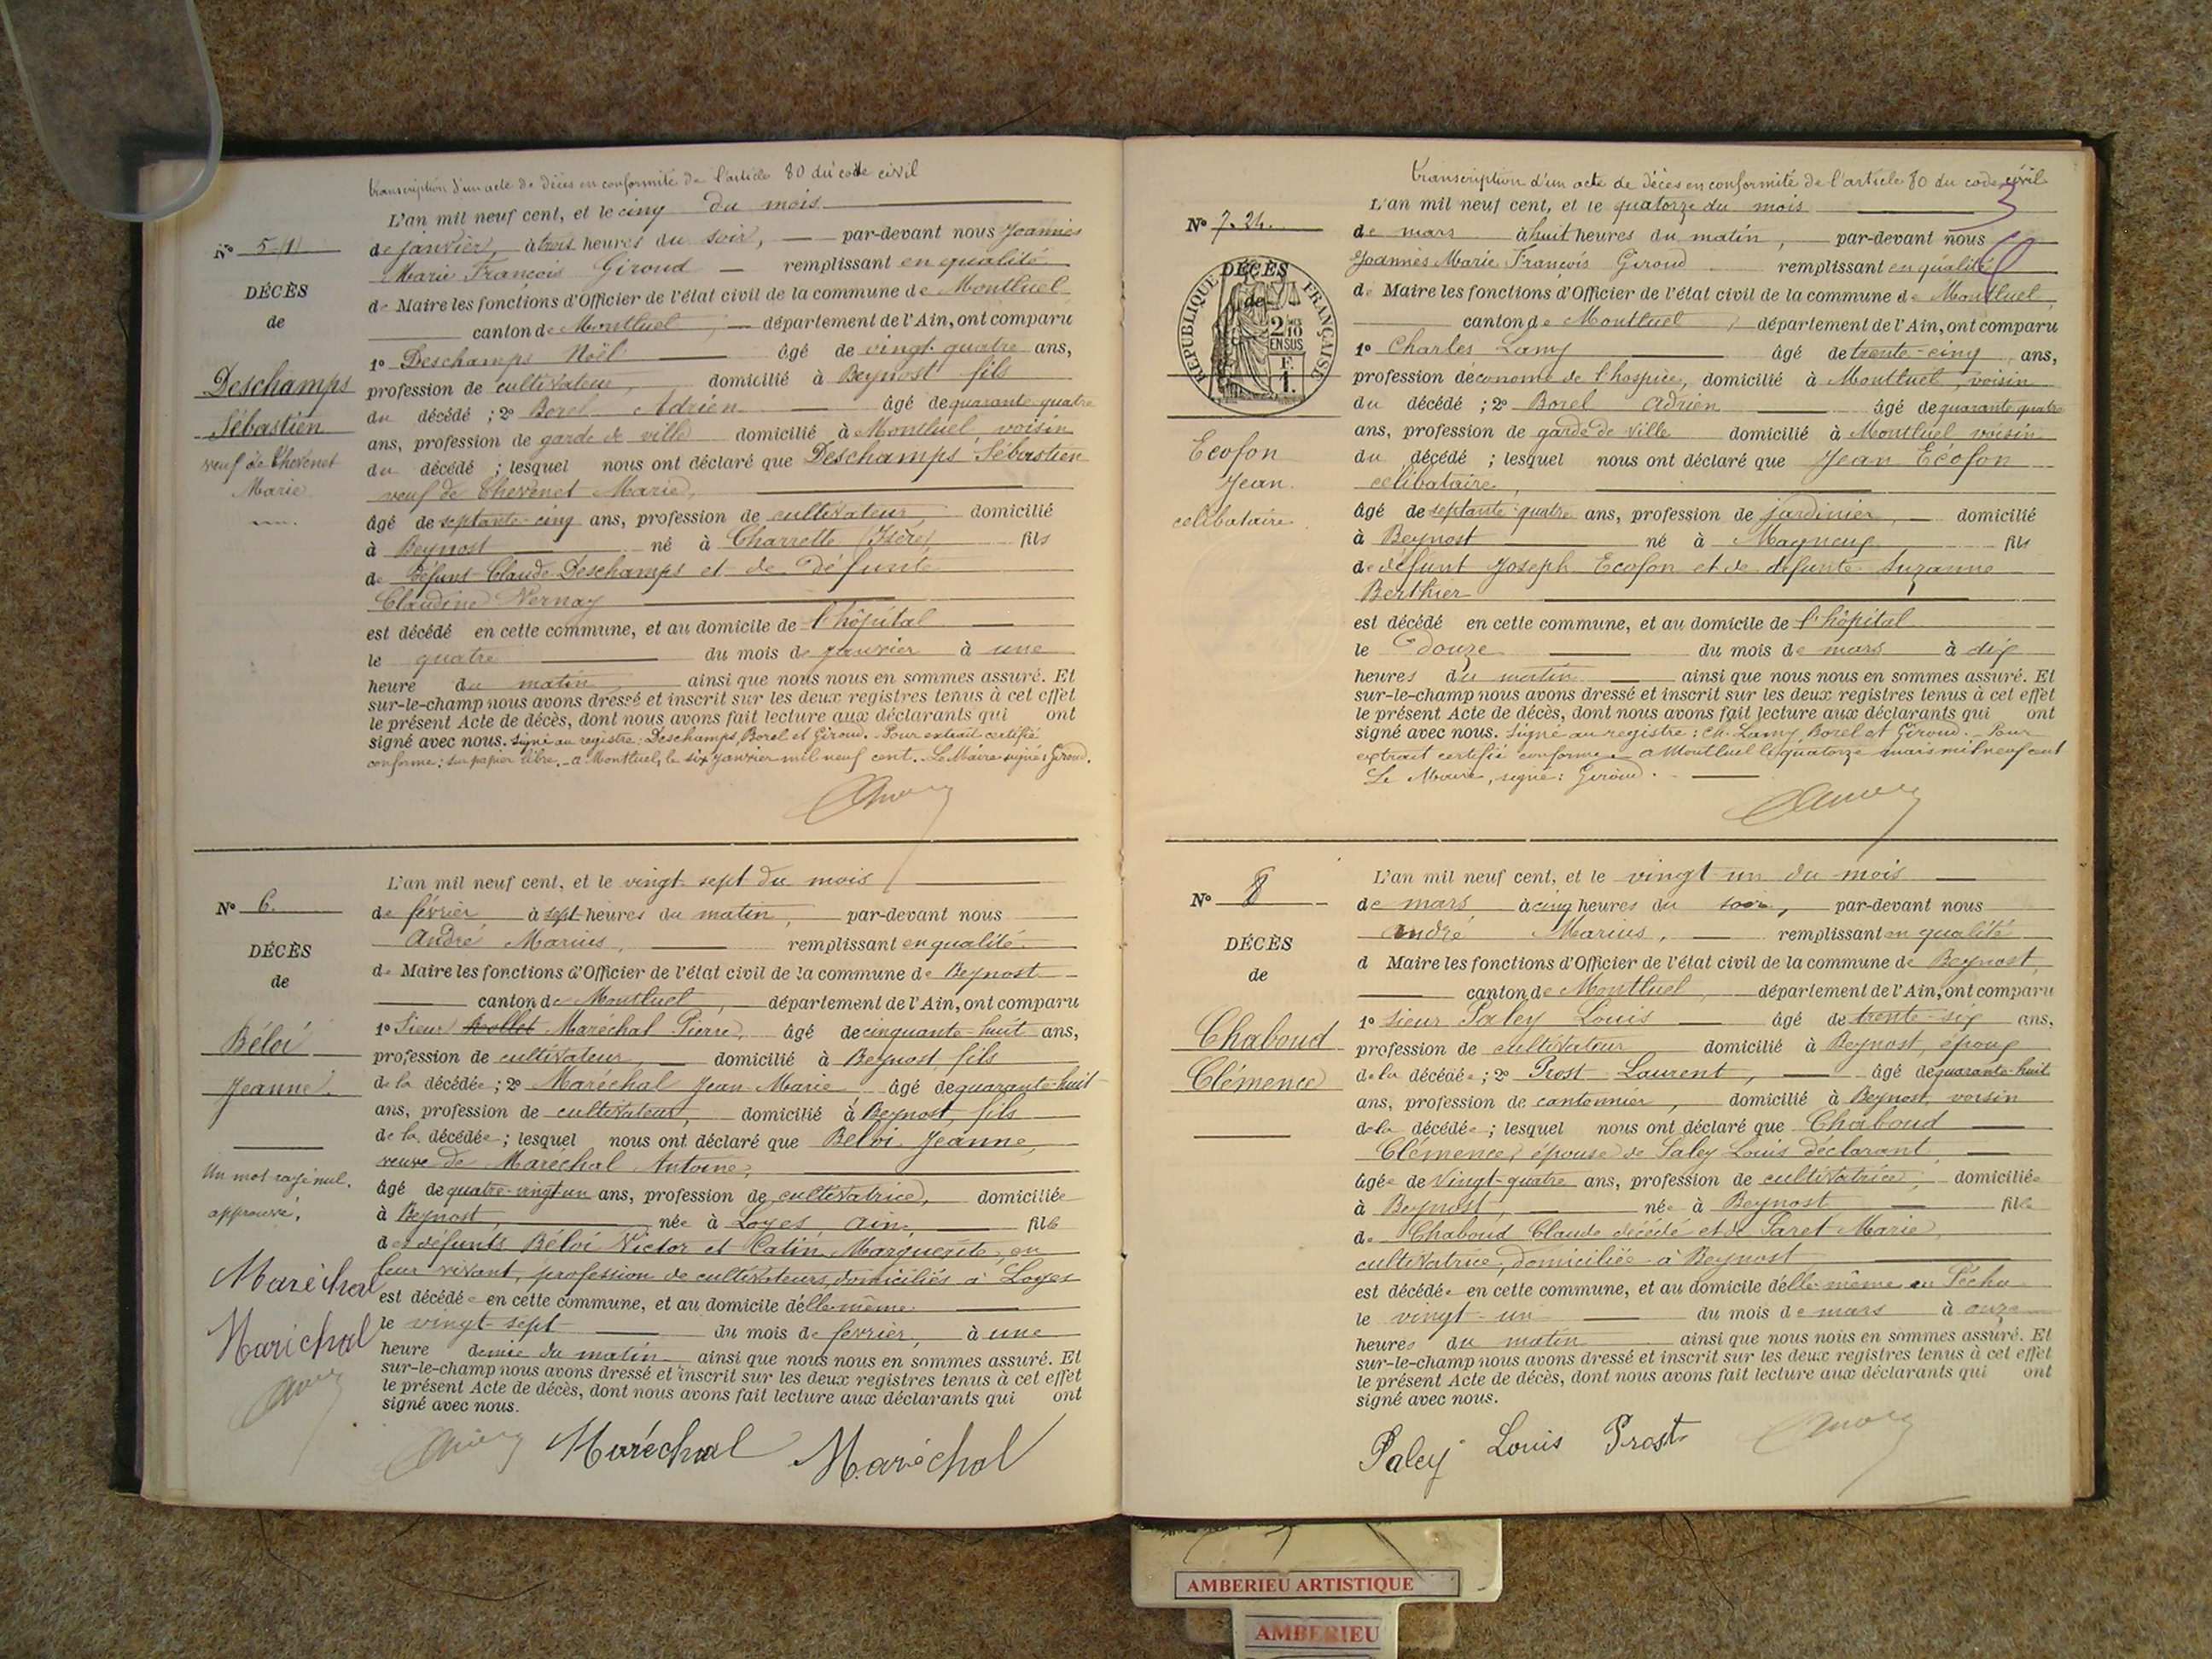 transcription d'un acte de décès en conformité de l'article 80 du code civil
L'an mil neuf cent, et le cinq du mois
de janvier, à trois heures du soir, par-devant nous Joannès
Marie François Giroud remplissant en qualité
de Maire les fonctions d'Officier de l'état civil de la commune de Montluel
canton de Montluel, département de l'Ain, ont comparu
1º Deschamps Noël âgé de vingt-quatre ans,
profession de cultivateur, domicilié à Beynost fils
du décédé ; 2º Borel Adrien âgé de quarante quatre
ans, profession de garde de ville domicilié à Montluel voisin
du décédé ; lesquel nous ont déclaré que Deschamps Sébastien
veuf de Thevenet Marie,
âgé de septante-cinq ans, profession de cultivateur domicilié
à Beynost né à Charrette (Isère) fils
de défunt Claude Deschamps et de défunte
Claudine Vernay
est décédé en cette commune, et au domicile de l'hôpital
le quatre du mois de janvier à une
heure du matin, ainsi que nous nous en sommes assuré. Et
sur-le-champ nous avons dressé et inscrit sur les deux registres tenus à cet effet
le présent Acte de décès, dont nous avons fait lecture aux déclarants qui ont
signé avec nous. Signé au registre : Deschamps, Borel et Giroud. Pour extrait certifié
conforme : sur papier libre. - a Montluel, le six janvier mil neuf cent. Le Maire signé : Giroud.
Nº 5
DÉCÈS
de
Deschamps
Sébastien
veuf de Thevenet
Marie
L'an mil neuf cent, et le vingt-sept du mois
de février à sept heures du matin, par-devant nous
André Marius, remplissant en qualité
de Maire les fonctions d'Officier de l'état civil de la commune de Beynost
canton de Montluel, département de l'Ain, ont comparu
1º Sieur Maréchal Pierre, âgé de cinquante-huit ans,
profession de cultivateur, domicilié à Beynost, fils
de la décédée ; 2º Maréchal Jean-Marie, âgé de quarante-huit
ans, profession de cultivateur, domicilié à Beynost, fils
de la décédée ; lesquel nous ont déclaré que Béloi Jeanne,
veuve de Maréchal Antoine,
âgé de quatre-vingt un ans, profession de cultivatrice, domiciliée
à Beynost, née à Loyes Ain, fille
des défunts Béloi Victor et Catin Marguerite, en
leur vivant, profession de cultivateurs, domiciliés à Loyes
est décédée en cette commune, et au domicile d'elle-même
le vingt-sept du mois de février, à une
heure demie du matin ainsi que nous nous en sommes assuré. Et
sur-le-champ nous avons dressé et inscrit sur les deux registres tenus à cet effet
le présent Acte de décès, dont nous avons fait lecture aux déclarants qui ont
signé avec nous.
Maréchal Maréchal
Nº 6.
DÉCÈS
de
Béloi
Jeanne.
Un mot rayé nul.
approuvé,
Maréchal
Maréchal
transcription d'un acte de décès en conformité de l'article 80 du code civil
L'an mil neuf cent, et le quatorze du mois
de mars à huit heures du matin, par-devant nous
Joannès Marie François Giroud remplissant en qualité
de Maire les fonctions d'Officier de l'état civil de la commune de Montluel
canton de Montluel, département de l'Ain, ont comparu
1º Charles Lamy âgé de trente-cinq ans,
profession d'économe de l'hospice, domicilié à Montluel, voisin
du décédé ; 2º Borel Adrien âgé de quarante quatre
ans, profession de garde de ville domicilié à Montluel voisin
du décédé ; lesquel nous ont déclaré que Jean Ecofon
célibataire,
âgé de septante-quatre ans, profession de jardinier, domicilié
à Beynost né à Magneux fils
de défunt Joseph Ecofon et de défunte Suzanne
Berthier
est décédé en cette commune, et au domicile de l'hôpital
le douze du mois de mars à dix
heures du matin ainsi que nous nous en sommes assuré. Et
sur-le-champ nous avons dressé et inscrit sur les deux registres tenus à cet effet
le présent Acte de décès, dont nous avons fait lecture aux déclarants qui ont
signé avec nous. Signé au registre : Ch. Lamy, Borel et Giroud. Pour
extrait certifié conforme. - a Montluel le quatorze mars mil neuf cent
Le Maire, signé : Giroud.
Nº 7.
DÉCÈS
de
RÉPUBLIQUE FRANÇAISE
2/10
EN SUS
F.
1.
Ecofon
Jean
célibataire
L'an mil neuf cent, et le vingt un du mois
de mars à cinq heures du soir, par-devant nous
André Marius, remplissant en qualité
d Maire les fonctions d'Officier de l'état civil de la commune de Beynost,
canton de Montluel, département de l'Ain, ont comparu
1º Sieur Paley Louis âgé de trente-six ans,
profession de cultivateur domicilié à Beynost, époux
de la décédée ; 2º Prost Laurent, âgé de quarante-huit
ans, profession de cantonnier, domicilié à Beynost, voisin
de la décédée ; lesquel nous ont déclaré que Chaboud
Clémence, épouse de Paley Louis déclarant,
âgée de Vingt-quatre ans, profession de cultivatrice, domiciliée
à Beynost, née à Beynost fille
de Chaboud Claude décédé et de Paret Marie,
cultivatrice, domiciliée à Beynost
est décédée en cette commune, et au domicile d'elle-même
le vingt-un du mois de mars à onze
heures du matin ainsi que nous nous en sommes assuré. Et
sur-le-champ nous avons dressé et inscrit sur les deux registres tenus à cet effet
le présent Acte de décès, dont nous avons fait lecture aux déclarants qui ont
signé avec nous.
Paley Louis Prost
Nº 8
DÉCÈS
de
Chaboud
Clémence
AMBERIEU ARTISTIQUE
AMBERIEU